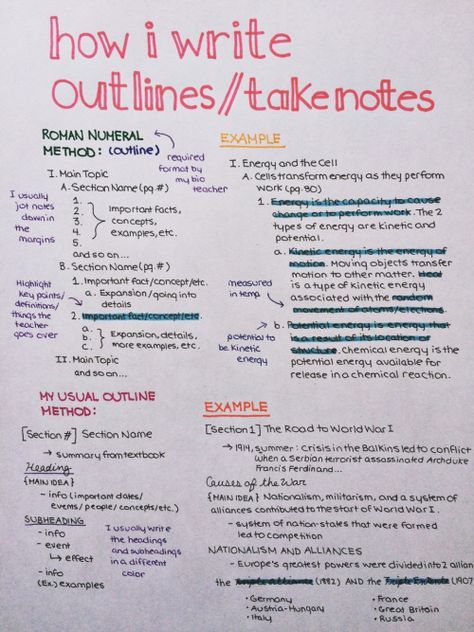 how i write
outlines//take notes
ROMAN NUMERAL
METHOD: (outline)
required
format by
my bio
teacher
I. Main Topic
A. Section Name (pg.#)
1.
2.
3.
4.
5.
Important facts,
concepts,
examples, etc.
and so on...
I usually
jot notes
down in
the
margins
B. Section Name (pg.#)
1. Important fact/concept/etc.
a. Expansion/going into
details
2. Important fact/concept/etc.
a.
b.
c.
Expansion, details,
more examples, etc.
Highlight
key points/
definitions/
things the
teacher
goes over
II. Main Topic
and so on...
EXAMPLE
I. Energy and the Cell
A. Cells transform energy as they perform
work (pg.80)
1. Energy is the capacity to cause
change or to perform work. The 2
types of energy are kinetic and
potential.
a. Kinetic energy is the energy of
motion. Moving objects transfer
motion to other matter. Heat
is a type of kinetic energy
associated with the random
movement of atoms/electrons.
measured
in temp
b. Potential energy is energy that
is a result of its location or
structure. Chemical energy is the
potential energy available for
release in a chemical reaction.
potential to
be kinetic
energy
MY USUAL OUTLINE
METHOD:
[Section #] Section Name
→ summary from textbook
Heading
{MAIN IDEA}
- info (important dates/
events/people/concepts/etc.)
SUBHEADING
- info
- event
↳ effect
- info
(Ex.) examples
I usually write
the headings
and subheadings
in a different
color
EXAMPLE
[Section 1] The Road to World War I
→ 1914, summer: Crisis in the Balkins led to conflict
when a Serbian terrorist assassinated Archduke
Francis Ferdinand...
Causes of the War
{MAIN IDEA} Nationalism, militarism, and a system of
alliances contributed to the start of World War I.
- system of nation-states that were formed
led to competition
NATIONALISM AND ALLIANCES
- Europe's greatest powers were divided into 2 allian
the Triple Alliance (1882) AND the Triple Entente (1907
• Germany
• Austria-Hungary
• Italy
• France
• Great Britain
• Russia